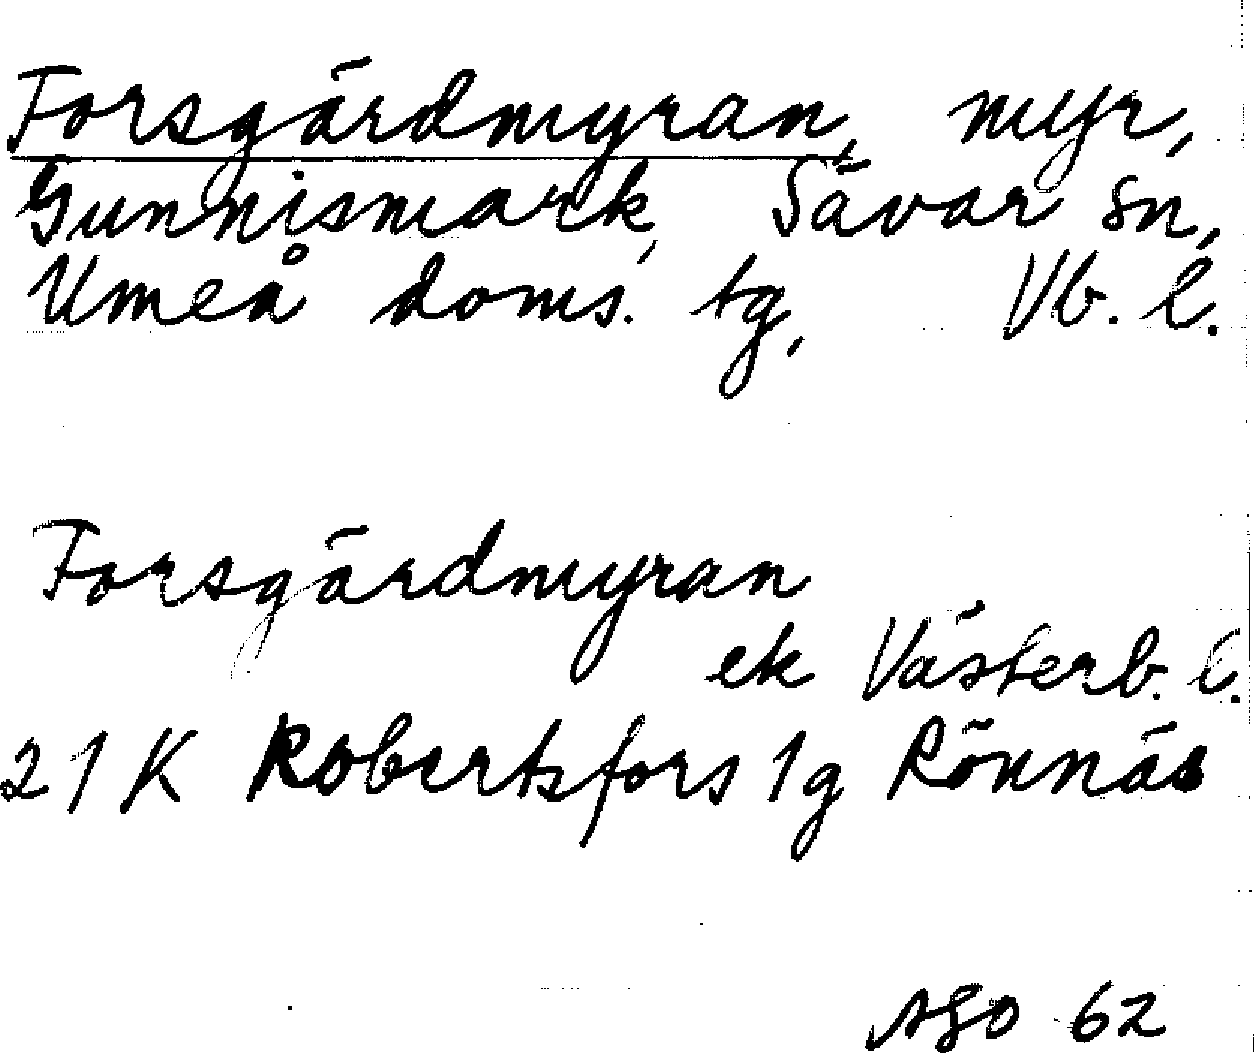 Forsgärdmyran, myr,
Gunnismark, Sävar sn,
Umeå doms. tg, Vb. l.
Forsgärdmyran
ek Västerb. l.
21 K Robertsfors 1g Rönnäs
AGO 62